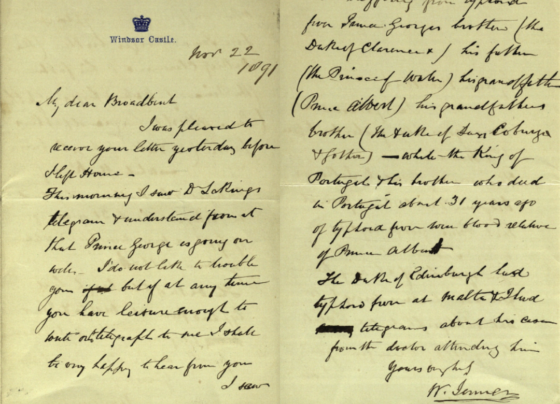 Windsor Castle.
Nov 22
1891
My dear Broadbent
I was pleased to
receive your letter yesterday before
I left Home –
This morning I saw Dr Laking's
telegram & understand from it
that Prince George is going on
well. I do not like to trouble
you but if at any time
you have leisure enough to
write or telegraph to me I shall
be very happy to hear from you
I saw
from typhoid
fever Prince Georges brother (the
Duke of Clarence &) his father
(the Prince of Wales) his grandfather
(Prince Albert) his grandfathers
brother (the Duke of Saxe Coburg
& Gotha) – while the King of
Portugal & his brother who died
in Portugal about 31 years ago
of typhoid fever were blood relatives
of Prince Albert
The Duke of Edinburgh had
typhoid fever at Malta & I had
telegrams about his case
from the doctor attending him
Yours
W. Jenner